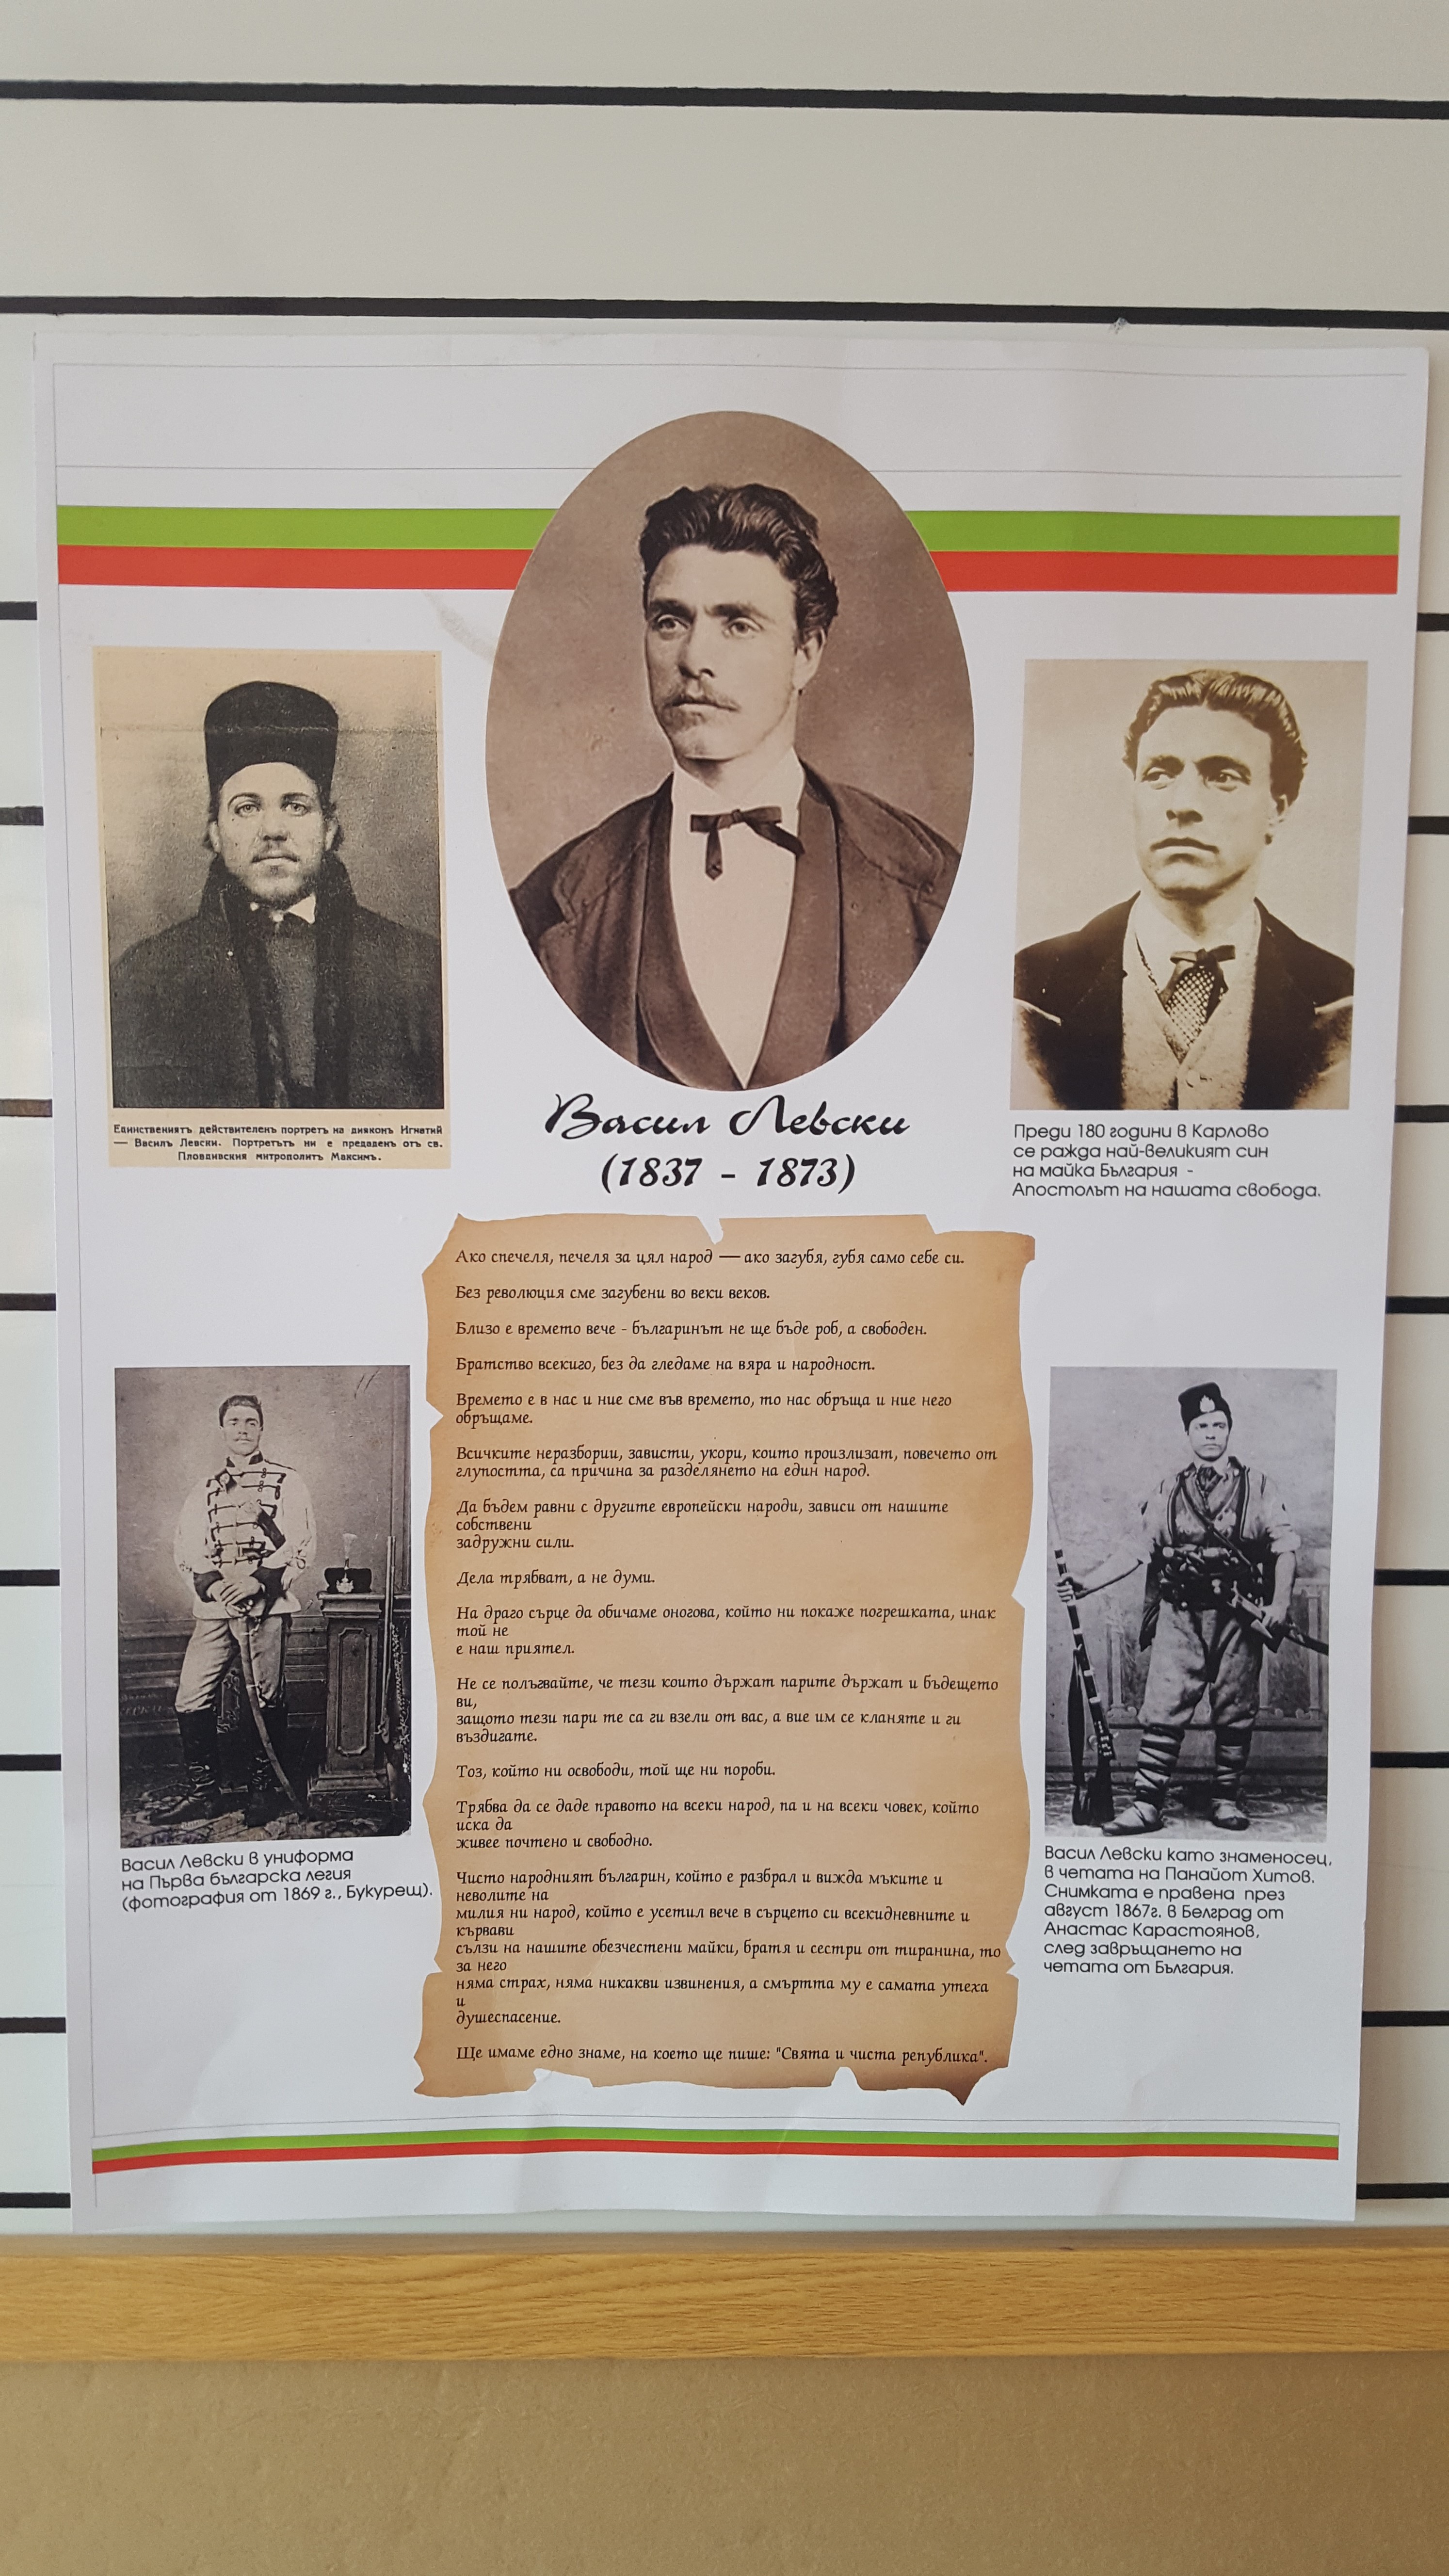 Единствениятъ действителенъ портретъ на дияконъ Игнатий
— Василъ Левски. Портретътъ ни е предаденъ отъ св.
Пловдивския митрополитъ Максимъ.
Васил Левски
(1837 - 1873)
Преди 180 години в Карлово
се ражда най-великият син
на майка България -
Апостолът на нашата свобода.
Ако спечеля, печеля за цял народ — ако загубя, губя само себе си.
Без революция сме загубени во веки веков.
Близо е времето вече - българинът не ще бъде роб, а свободен.
Братство всекиго, без да гледаме на вяра и народност.
Времето е в нас и ние сме във времето, то нас обръща и ние него
обръщаме.
Всичките неразбории, зависти, укори, които произлизат, повечето от
глупостта, са причина за разделянето на един народ.
Да бъдем равни с другите европейски народи, зависи от нашите
собствени
задружни сили.
Дела трябват, а не думи.
На драго сърце да обичаме оногова, който ни покаже погрешката, инак
той не
е наш приятел.
Не се полъгвайте, че тези които държат парите държат и бъдещето
ви,
защото тези пари те са ги взели от вас, а вие им се кланяте и ги
въздигате.
Тоз, който ни освободи, той ще ни пороби.
Трябва да се даде правото на всеки народ, па и на всеки човек, който
иска да
живее почтено и свободно.
Чисто народният българин, който е разбрал и вижда мъките и
неволите на
милия ни народ, който е усетил вече в сърцето си всекидневните и
кървави
сълзи на нашите обезчестени майки, братя и сестри от тиранина, то
за него
няма страх, няма никакви извинения, а смъртта му е самата утеха
и
душеспасение.
Ще имаме едно знаме, на което ще пише: "Свята и чиста република".
Васил Левски в униформа
на Първа българска легия
(фотография от 1869 г., Букурещ).
Васил Левски като знаменосец,
в четата на Панайот Хитов.
Снимката е правена през
август 1867г. в Белград от
Анастас Карастоянов,
след завръщането на
четата от България.